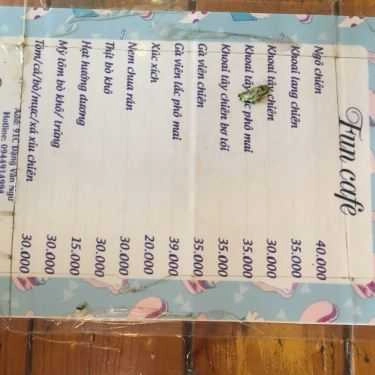 Fun cafe
Ngô chiên 40.000
Khoai lang chiên 35.000
Khoai tây chiên 30.000
Khoai tây lắc phô mai 35.000
Khoai tây chiên bơ tỏi 35.000
Gà viên chiên 35.000
Gà viên lắc phô mai 39.000
Xúc xích 20.000
Nem chua rán 30.000
Thịt bò khô 30.000
Hạt hướng dương 15.000
Mỳ tôm bò khô/ trứng 30.000
Tôm/cá/bò/mực/xá xíu chiên 30.000
Add: 91C Đặng Văn Ngữ
Hotline: 0944914994